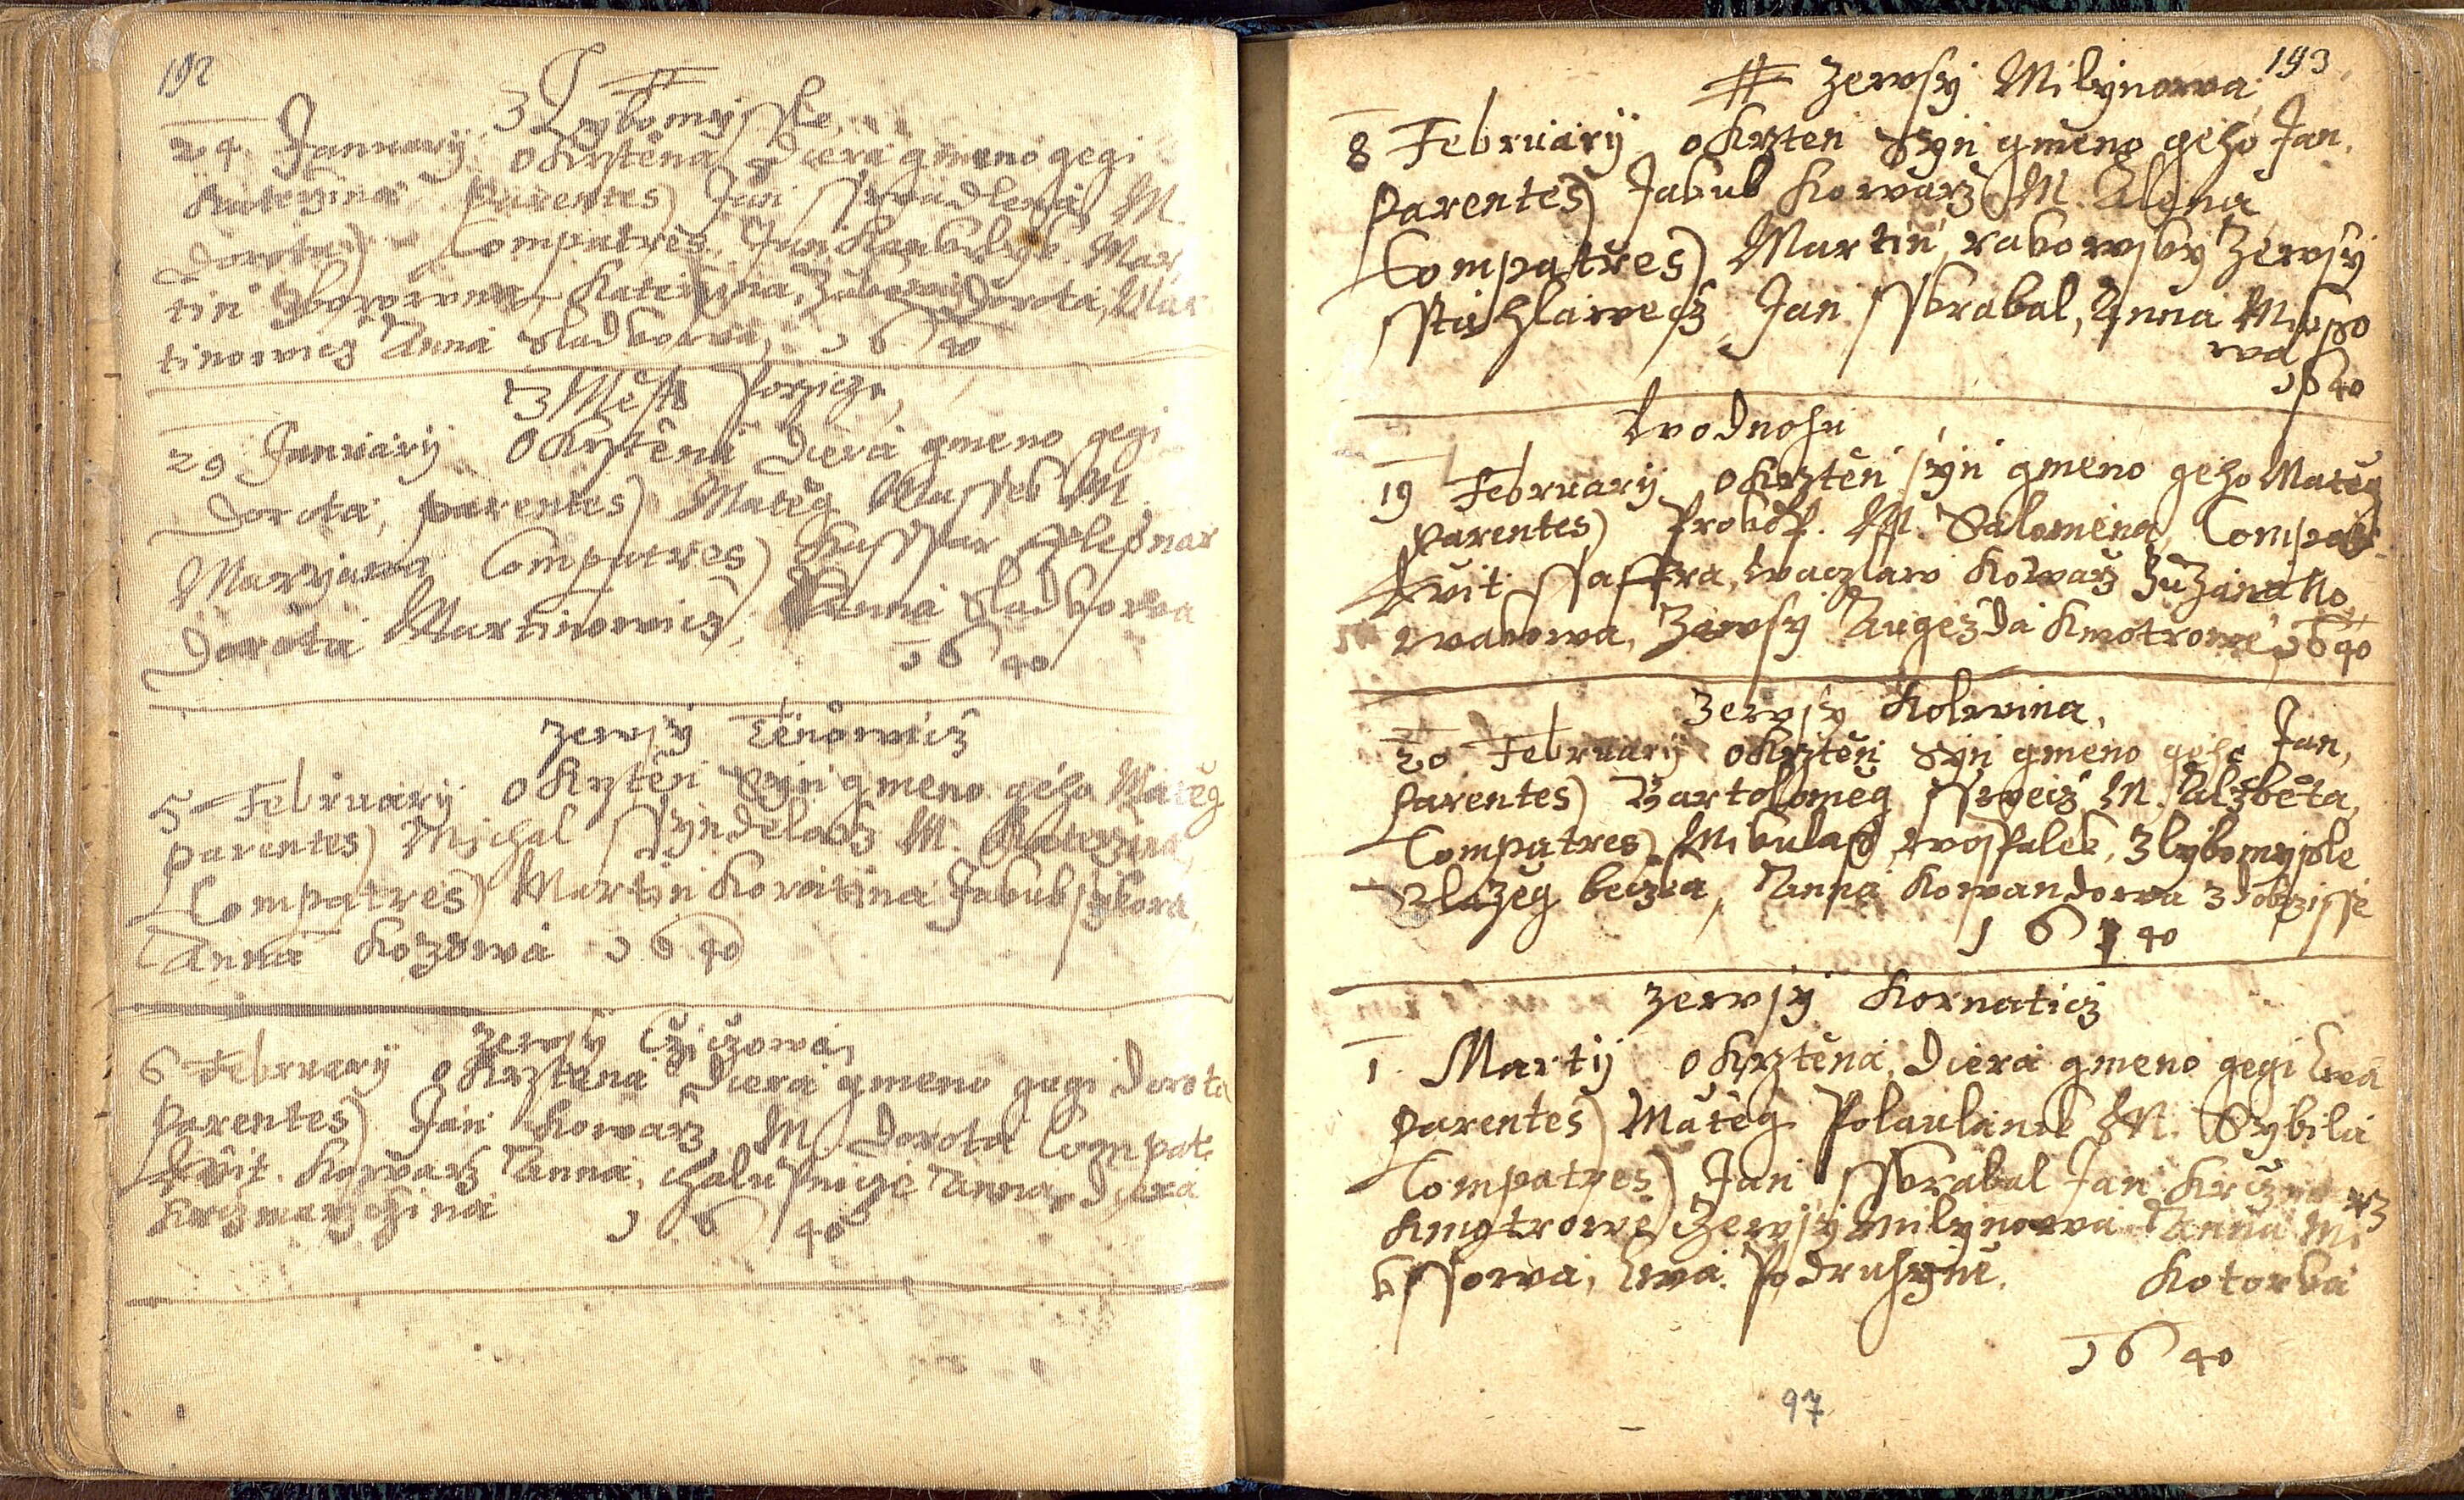 192
3 Lybomyssle
24 January okrstěna dcera gmeno gegi
Kateržina Parentes) Jan sswadlena M
Dorota) Compatres Jan Kaubalyk. Mar
tin Kateržina, Dorota, Mar
tinowicz Anna Sladkowa, 1640
3 Města Porzicze,
29 January okrztěna dcera gmeno gegi
Dorota, parentes) Matěg Massek M.
Maryana Compatres) Kasspar
Dorota Martinowicz, Anna Sladkowa
1640
zewsy Těnowicz
5 February okrztěn syn gmeno geho Matěg
parentes) Michal ssyndelarz M. Kateržina,
Compatres) Martin Koratina Jakub sykora,
Anna Kozowa 1640
zewsy Cžiczowa,
6 February okrztěna dcera gmeno gegi Dorota
parentes) Jan Kowarz M Dorota Compat.
Kwit. Kowarz Anna, chalupnicze Anna, dcera
Krczmarzchina 1640
193
zewsy Milynowa
8 February okrzten Syn gmeno geho Jan,
parentes) Jakub Kowarz M. Alena
Compatres) Martin rakowsky zewsy
sstiahlawecz Jan sskrabal, Anna Miksso
wa
1640
Lwodnohu
19 February okrztěn syn gmeno geho Matěg
parentes) Prokop. M. Salomena, Compat
Kwit ssaffra, waczlaw Kowarz Zuzana No
wakowa, zewsy Augezda Kmotrowé, 1640
zewsy Kolwina,
20 February okrztěn Syn gmeno geho Jan,
parentes) Bartolomeg sswecz M. Alžběta,
Compatres) Mikulass, wospalek, 3 lybomyssle
Blažeg beczka, Anna Kowandowa 3 dobrzisse
16 40
zewsy Kornaticz
1. Martij okrztěna, dcera gmeno gegi Ewa
parentes) Matěg Polaulanik M. Sybila
Compatres) Jan sskrabal Jan Krczmarz
kmotrowé zewsy milynowa Anna Mi
kssowa, Ewa Podruhyně. Kotorba
1640
97